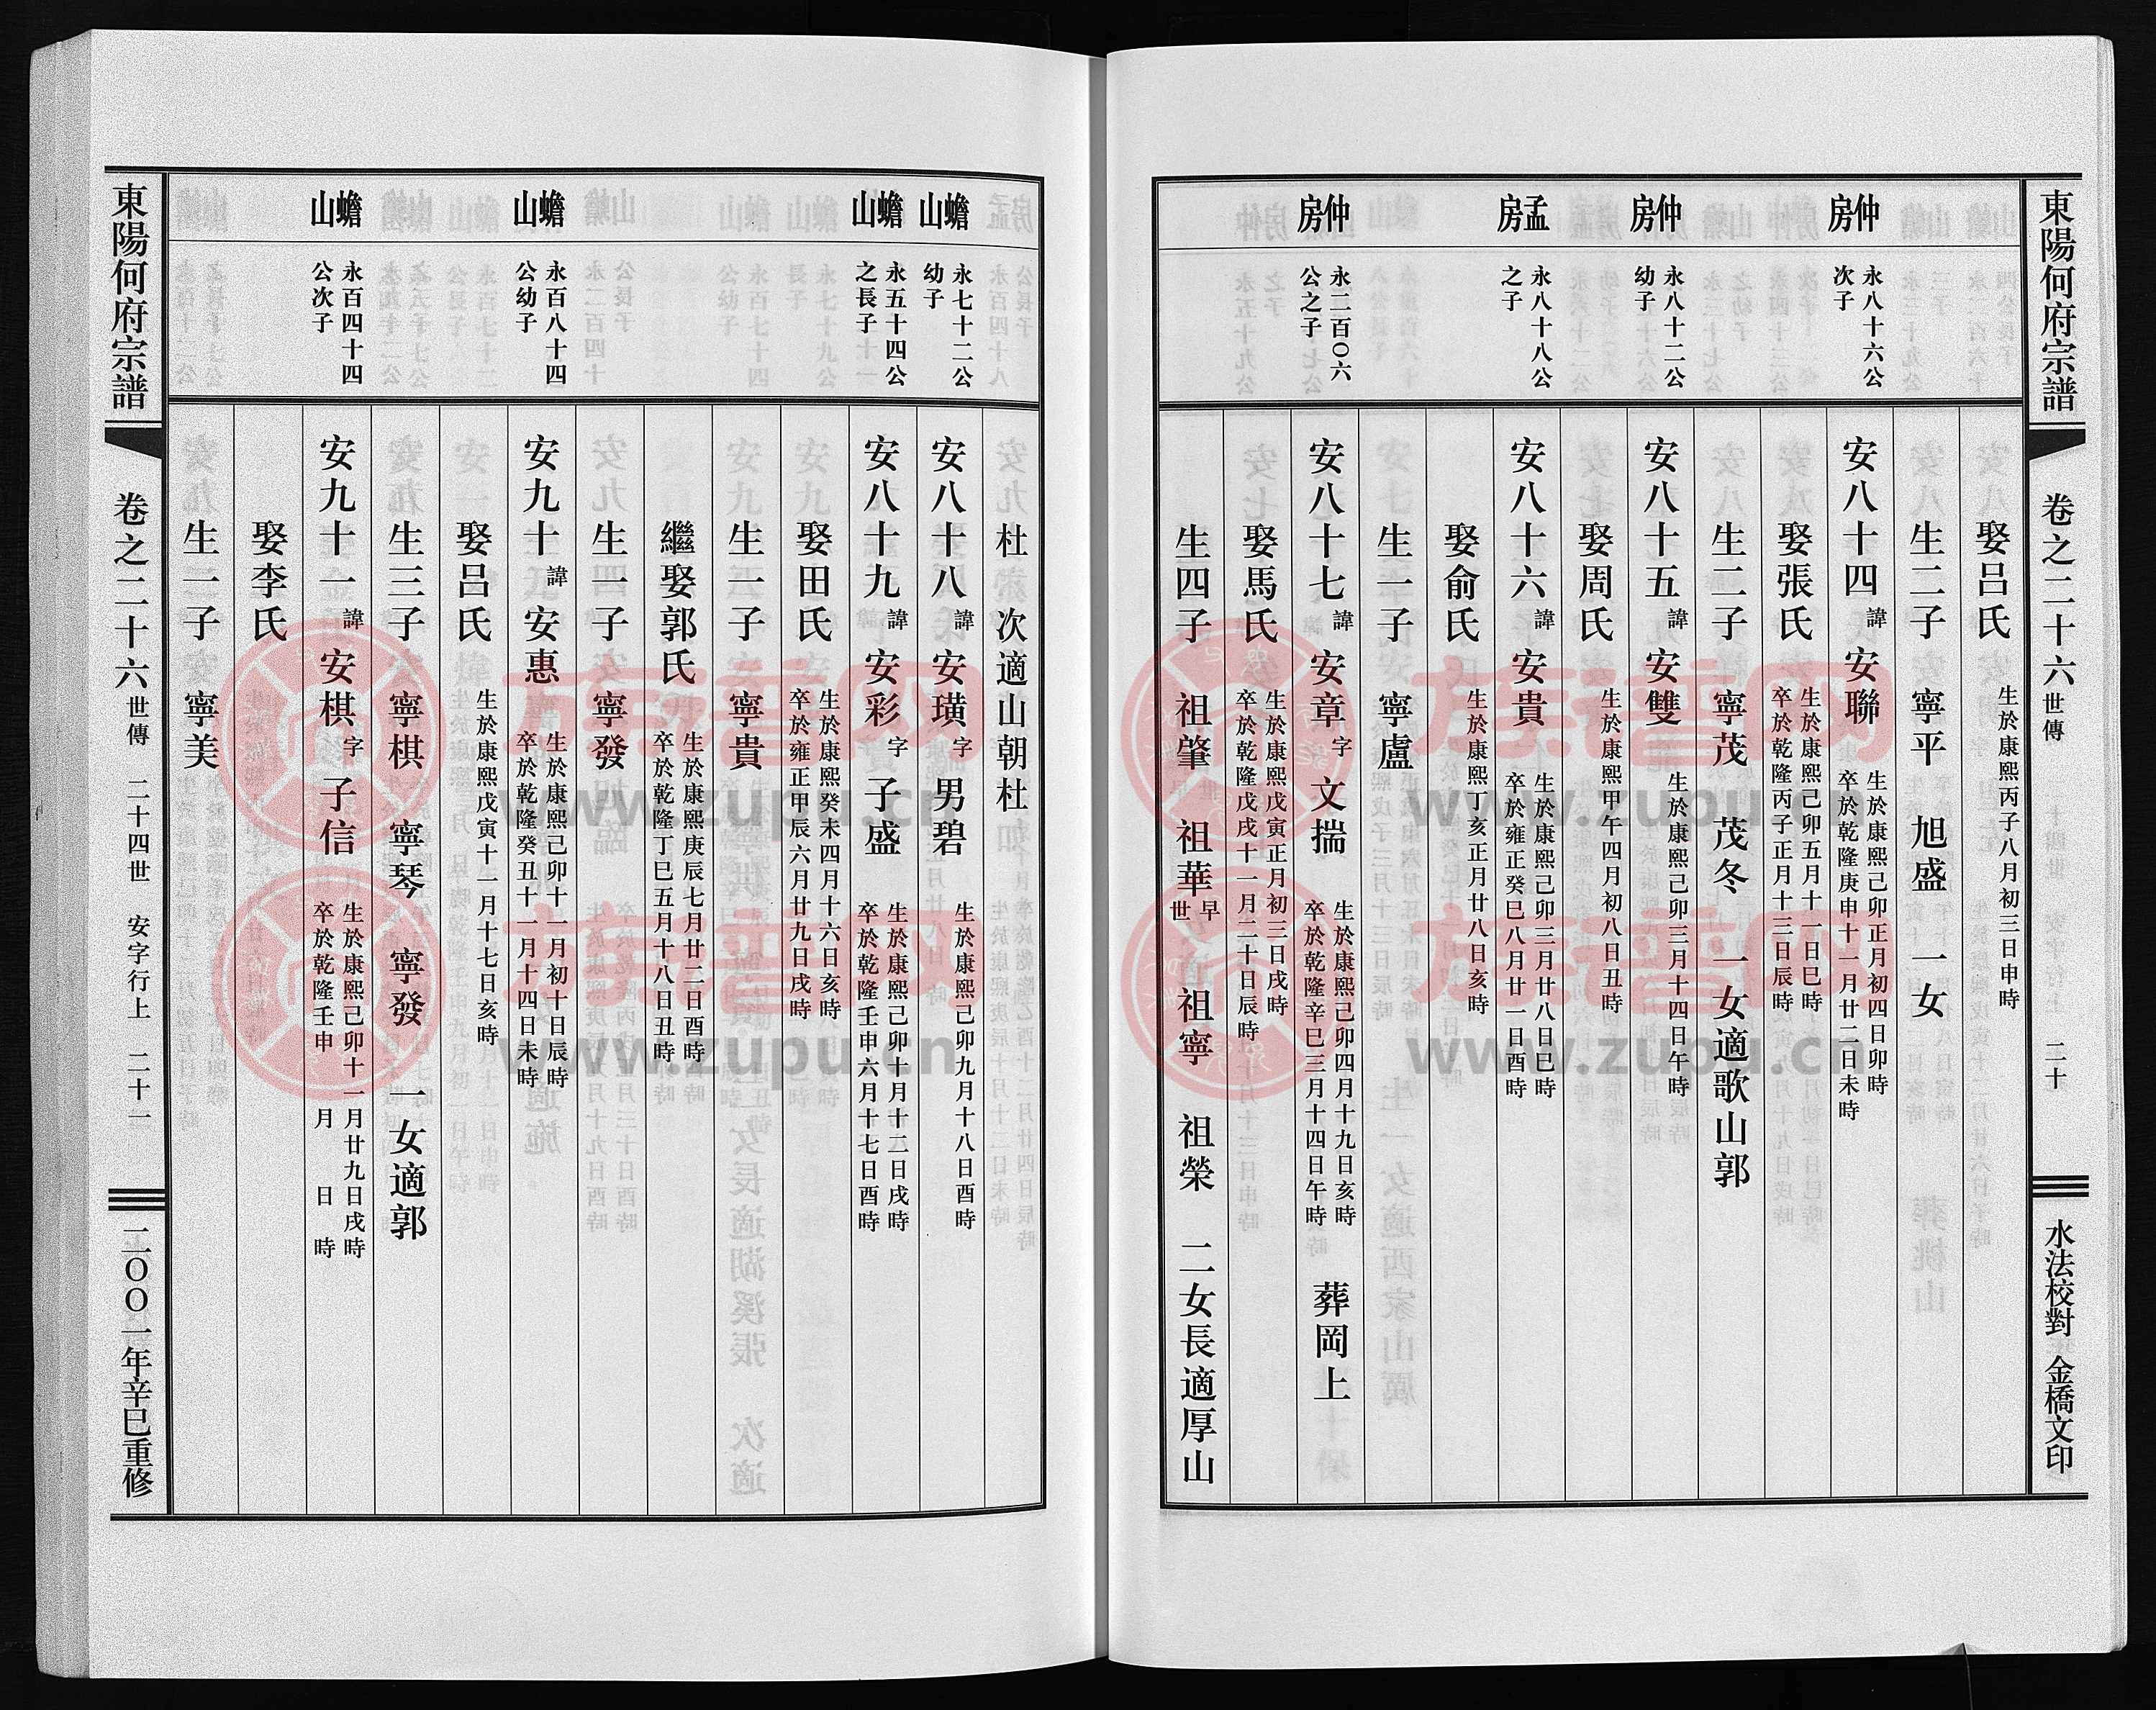 東陽何府宗譜
卷之二十六世傳 二十四世 二十
水法校對 金橋文印
娶呂氏 生於康熙丙子八月初三日申時
生二子 寧平 旭盛 一女
仲房
永八十六公次子
安八十四 諱 安聯 生於康熙己卯正月初四日卯時 卒於乾隆庚申十一月廿二日未時
娶張氏 生於康熙己卯五月十一日巳時 卒於乾隆丙子正月十三日辰時
生二子 寧茂 茂冬 一女適歌山郭
仲房
永八十二公幼子
安八十五 諱 安雙 生於康熙己卯三月十四日午時
娶周氏 生於康熙甲午四月初八日丑時
孟房
永八十八公之子
安八十六 諱 安貴 生於康熙己卯三月廿八日巳時 卒於雍正癸巳八月廿一日酉時
娶俞氏 生於康熙丁亥正月廿八日亥時
生一子 寧盧
仲房
永二百〇六公之子
安八十七 諱 安章 字 文揣 生於康熙己卯四月十九日亥時 卒於乾隆辛巳三月十四日午時 葬岡上
娶馬氏 生於康熙戊寅正月初三日戌時 卒於乾隆戊戌十一月二十日辰時
生四子 祖肇 祖華 早世 祖寧 祖榮 二女長適厚山
杜 次適山朝杜
蟾山
永七十二公幼子
安八十八 諱 安璜 字 男碧 生於康熙己卯九月十八日酉時
蟾山
永五十四公之長子
安八十九 諱 安彩 字 子盛 生於康熙己卯十月十二日戌時 卒於乾隆壬申六月十七日酉時
娶田氏 生於康熙癸未四月十六日亥時 卒於雍正甲辰六月廿九日戌時
生一子 寧貴
繼娶郭氏 生於康熙庚辰七月廿二日酉時 卒於乾隆丁巳五月十八日丑時
生一子 寧發
蟾山
永百八十四公幼子
安九十 諱 安惠 生於康熙己卯十一月初十日辰時 卒於乾隆癸丑十一月十四日未時
娶呂氏 生於康熙戊寅十二月十七日亥時
生三子 寧棋 寧琴 寧發 一女適郭
蟾山
永百四十四公次子
安九十一 諱 安棋 字 子信 生於康熙己卯十一月廿九日戌時 卒於乾隆壬申 月 日 時
娶李氏
生一子 寧美
東陽何府宗譜
卷之二十六世傳 二十四世 安字行上 二十一
二〇〇一年辛巳重修
族譜网
www.zupu.cn
族譜网
www.zupu.cn
族譜网
www.zupu.cn
族譜网
www.zupu.cn